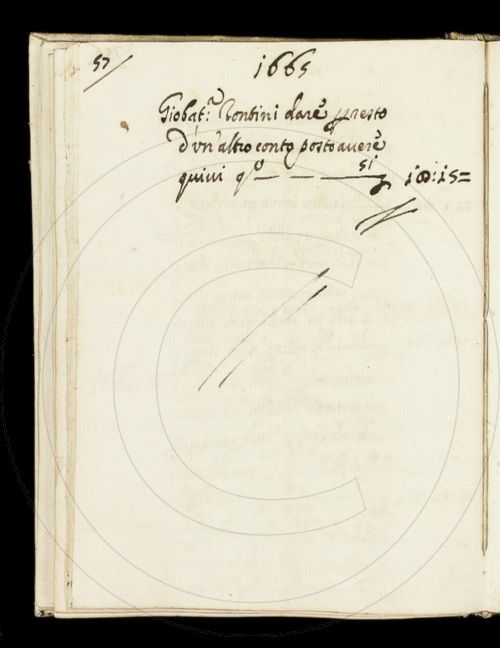 57
1665
Giobat:ᵃ Rontini dare p resto
d'un'altro conto posto avere
quivi qᵒ — — — 51 18:15=